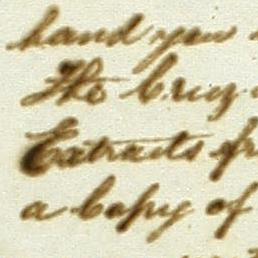 hand you
The Cruz
Extracts fr
a Copy of